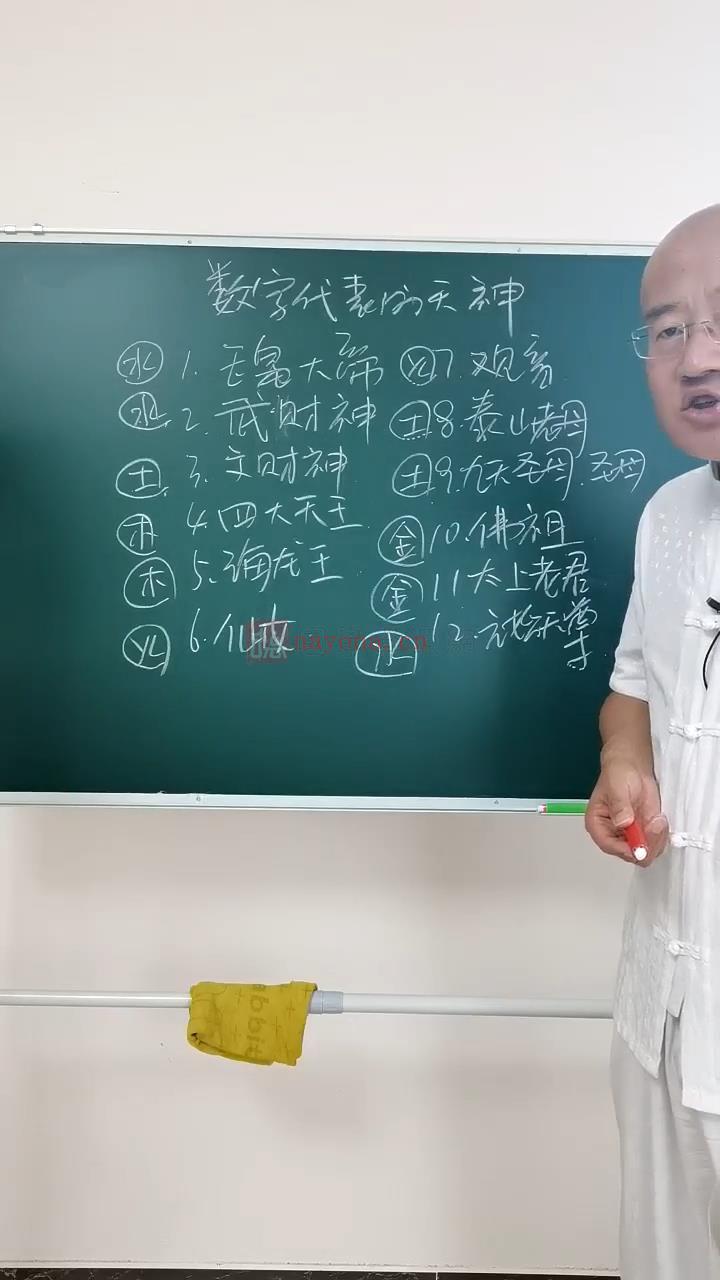 数字代表的天神
水 1. 玉皇大帝
水 2. 武财神
土 3. 文财神
木 4. 四大天王
木 5. 海龙王
火 6.
火 7. 观音
土 8. 泰山老母
土 9. 九天圣母. 圣母
金 10. 佛祖
金 11 太上老君
水 12. 元始天尊
nayona.cn
abbit